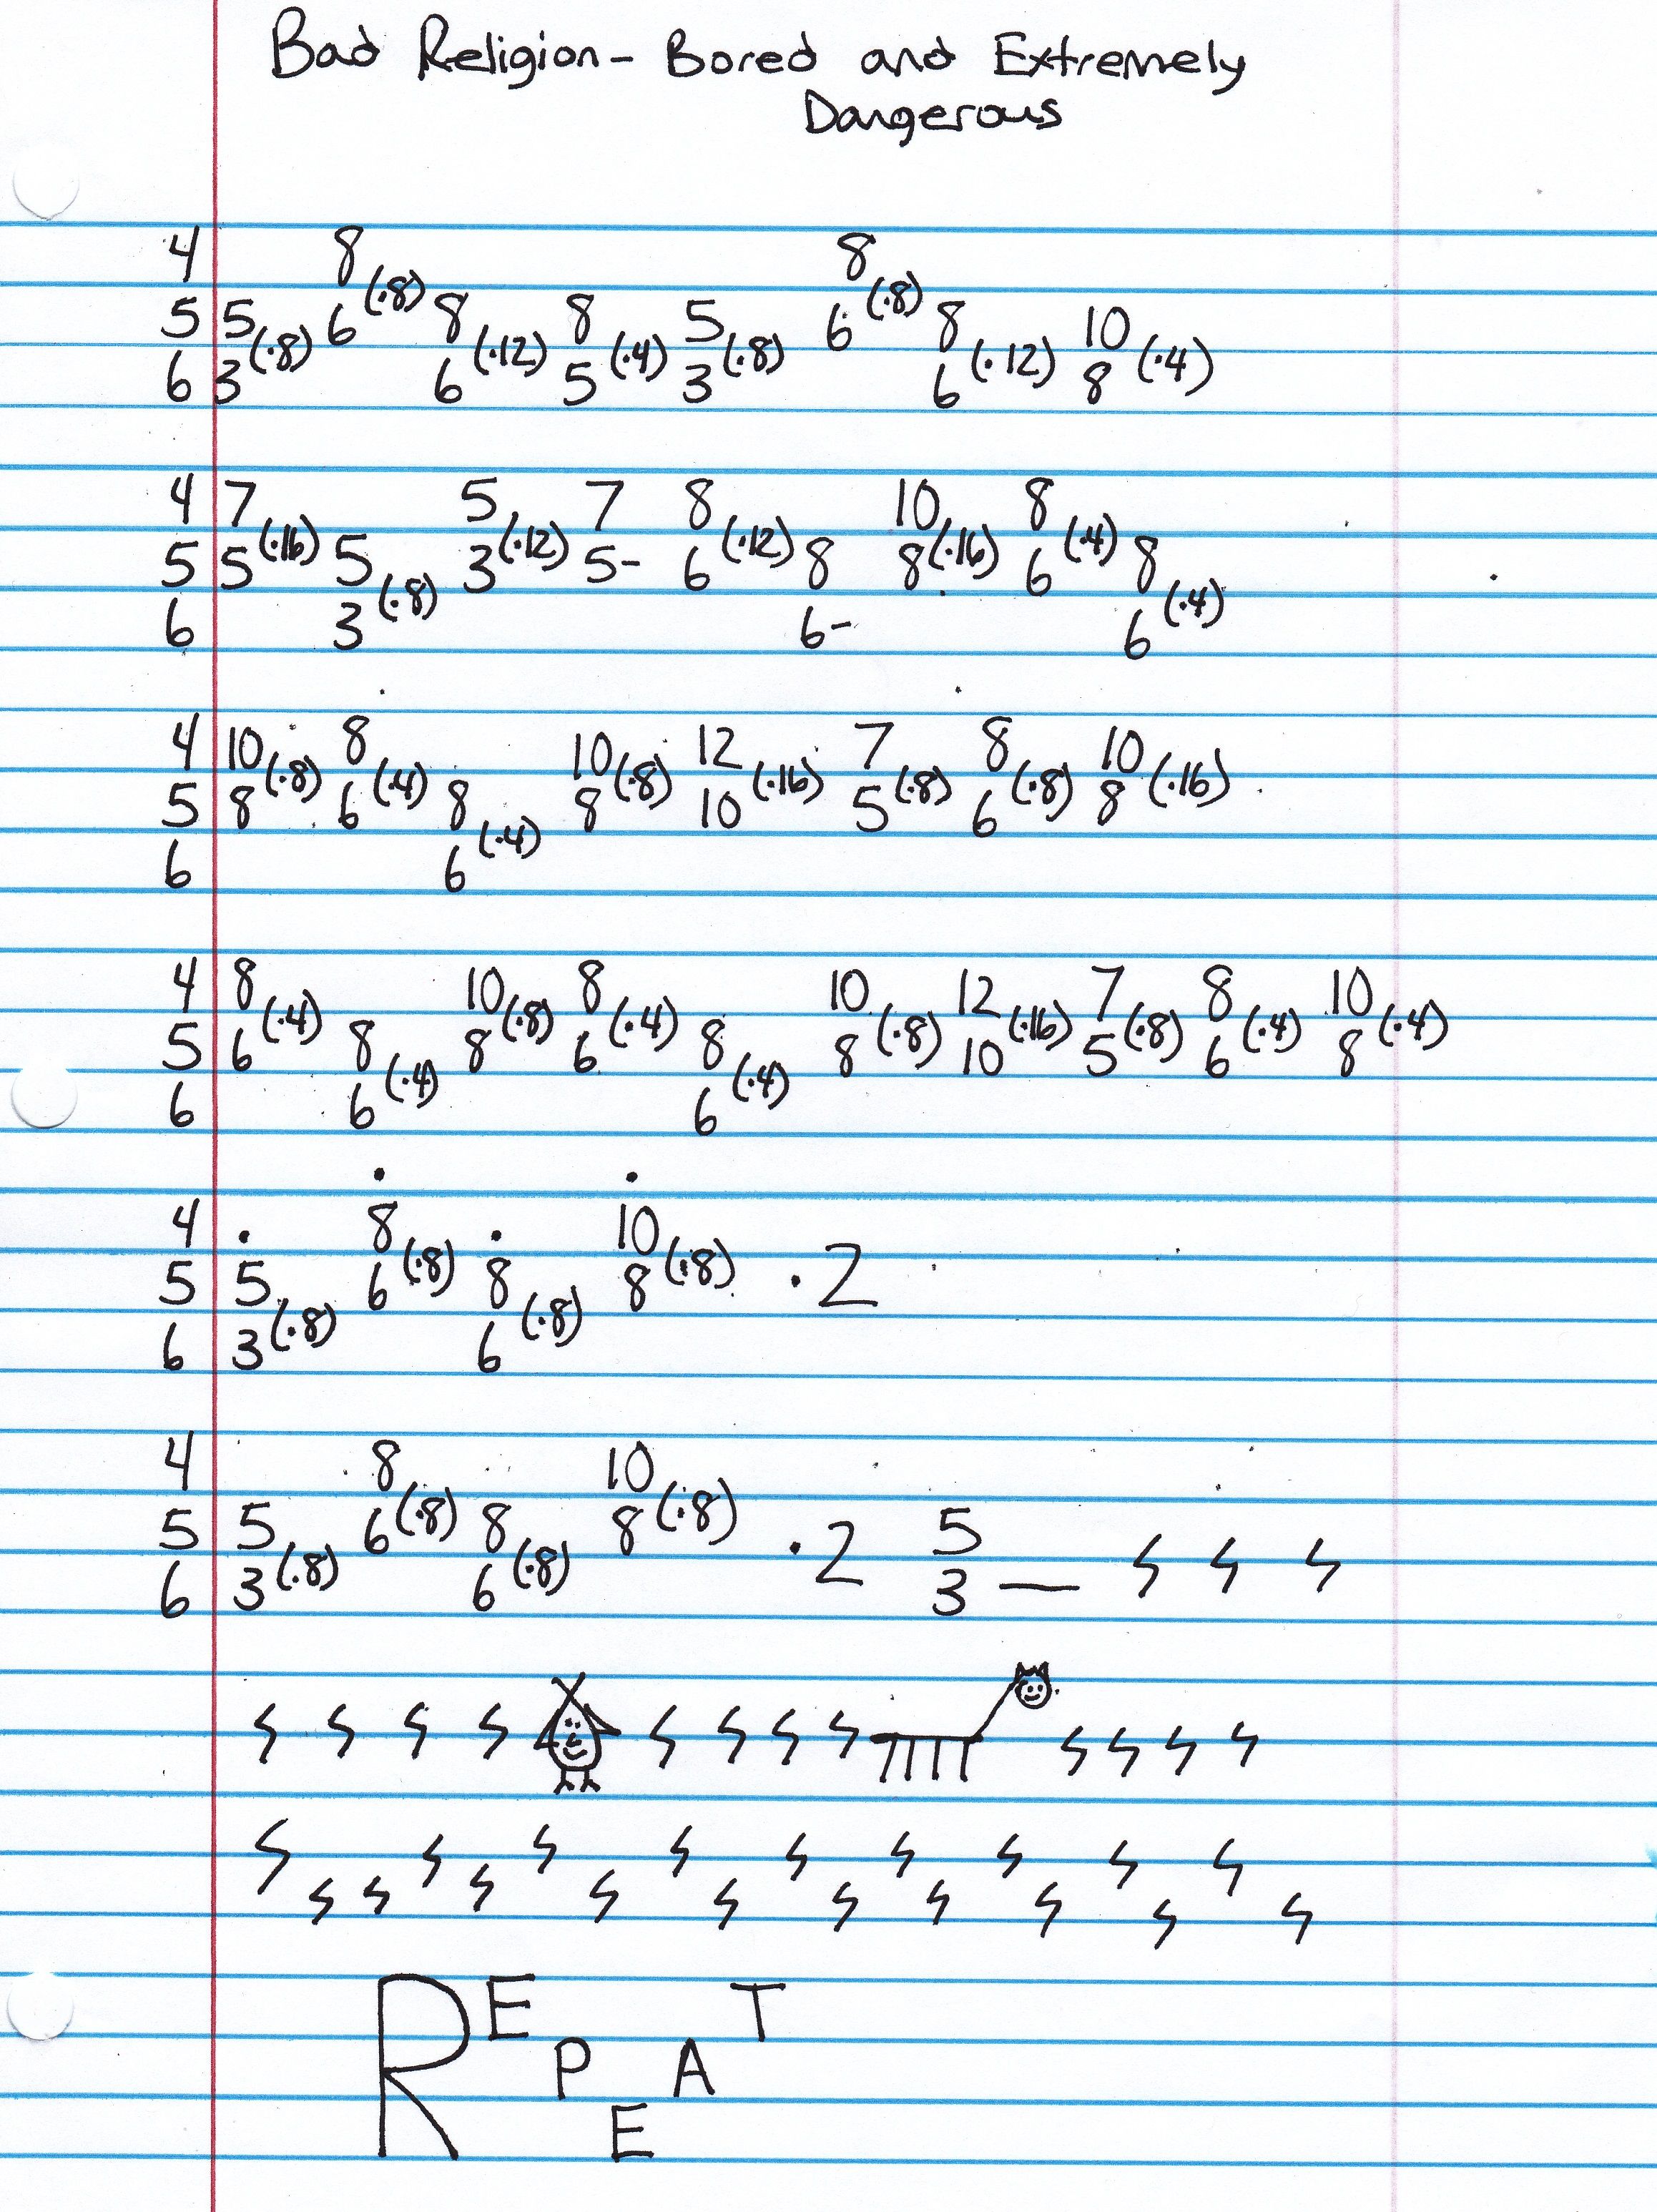 Bad Religion - Bored and Extremely
Dangerous
4 8 8
5 5 (.8) 6 (.8) 8 (.12) 8 (.4) 5 (.8) 6 (.8) 8 (.12) 10 (.4)
6 3 6 5 3 6 8
4 7 5 7 8 10 8
5 5 (.16) 5 3 (.12) 5- 6 (.12) 8 8 (.16) 6 (.4) 8
6 3 (.8) 6- 6 (.4)
4 10 8 10 12 7 8 10
5 8 (.8) 6 (.4) 8 8 (.8) 10 (.16) 5 (.8) 6 (.8) 8 (.16)
6 6 (.4)
4 8 10 8 10 12 7 8 10
5 6 (.4) 8 8 (.8) 6 (.4) 8 8 (.8) 10 (.16) 5 (.8) 6 (.4) 8 (.4)
6 6 (.4) 6 (.4)
4 8 10
5 5 6 (.8) 8 8 (.8) .2
6 3 (.8) 6 (.8)
4 8 10
5 5 6 (.8) 8 8 (.8) .2 5
6 3 (.8) 6 (.8) 3 —
REPEAT